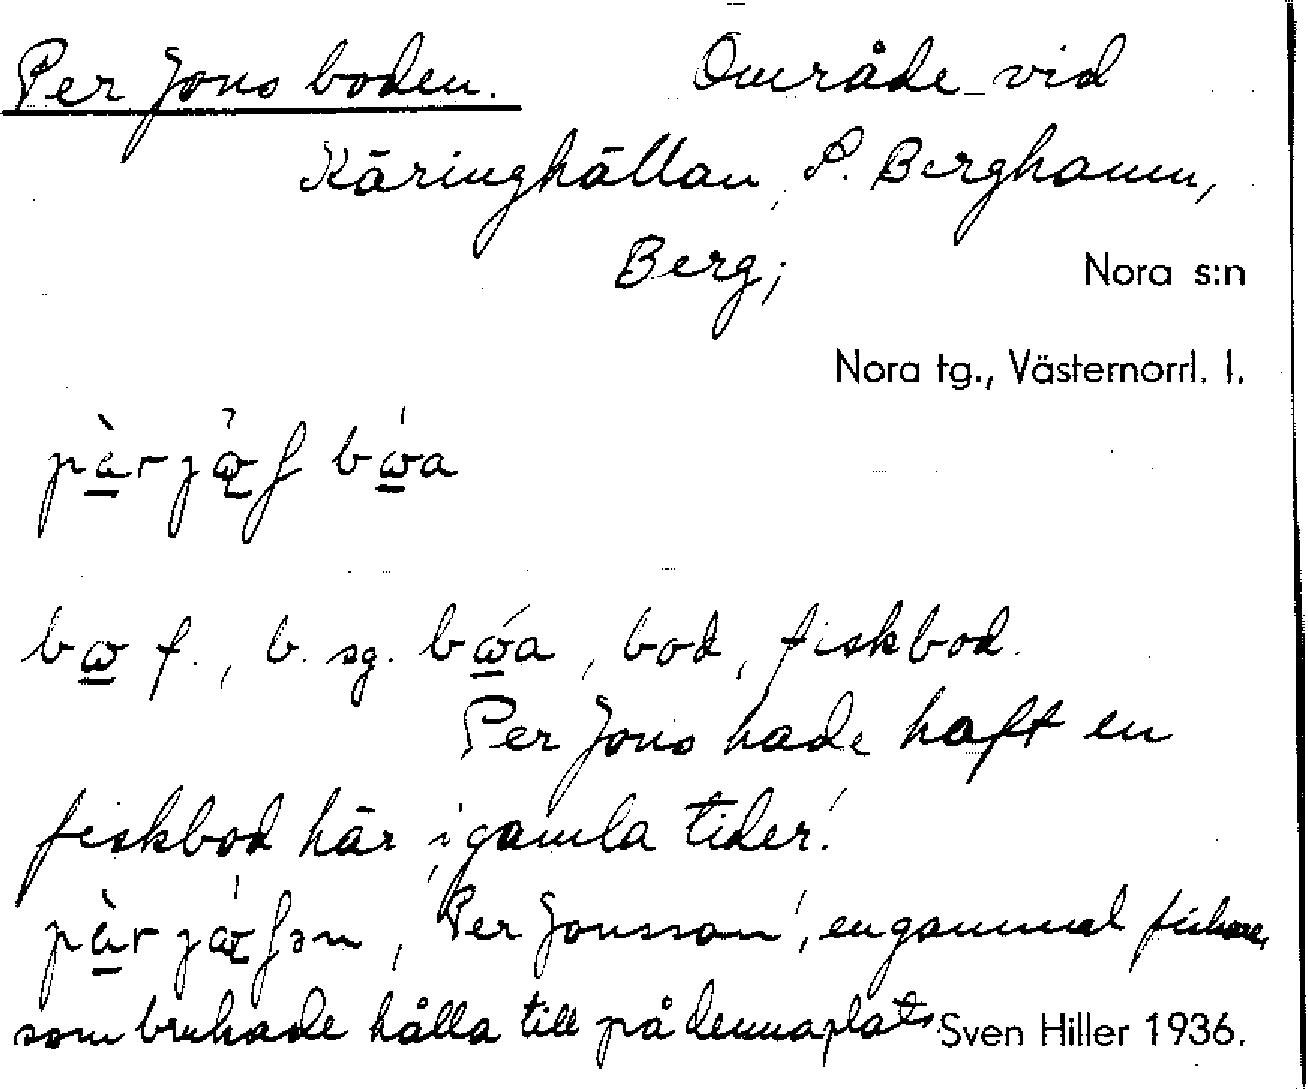 Per Jons boden. Område vid
Käringhällan, S. Berghamn,
Berg; Nora s:n
Nora tg., Västernorrl. l.
f., b. sg. , bod, fiskbod.
Per Jons hade haft en
fiskbod här i gamla tider.
'Per Jonsson', en gammal fiskare,
som brukade hålla till på denna plats. Sven Hiller 1936.